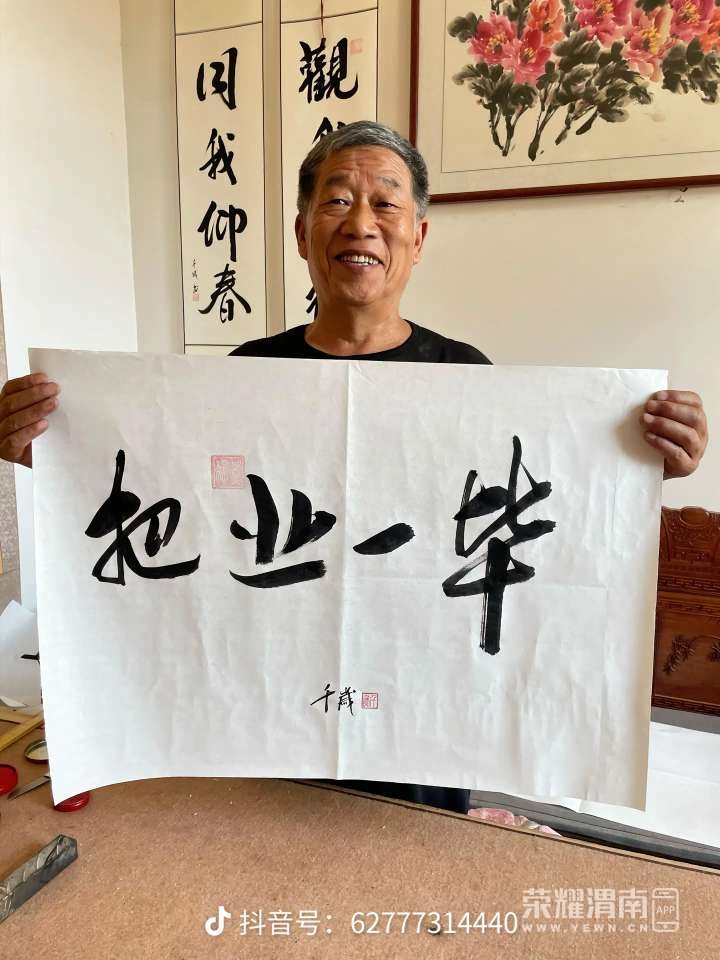 觀
我仰春
把业一毕
千歲
抖音号：62777314440
荣耀渭南
APP
WWW.YEWN.CN